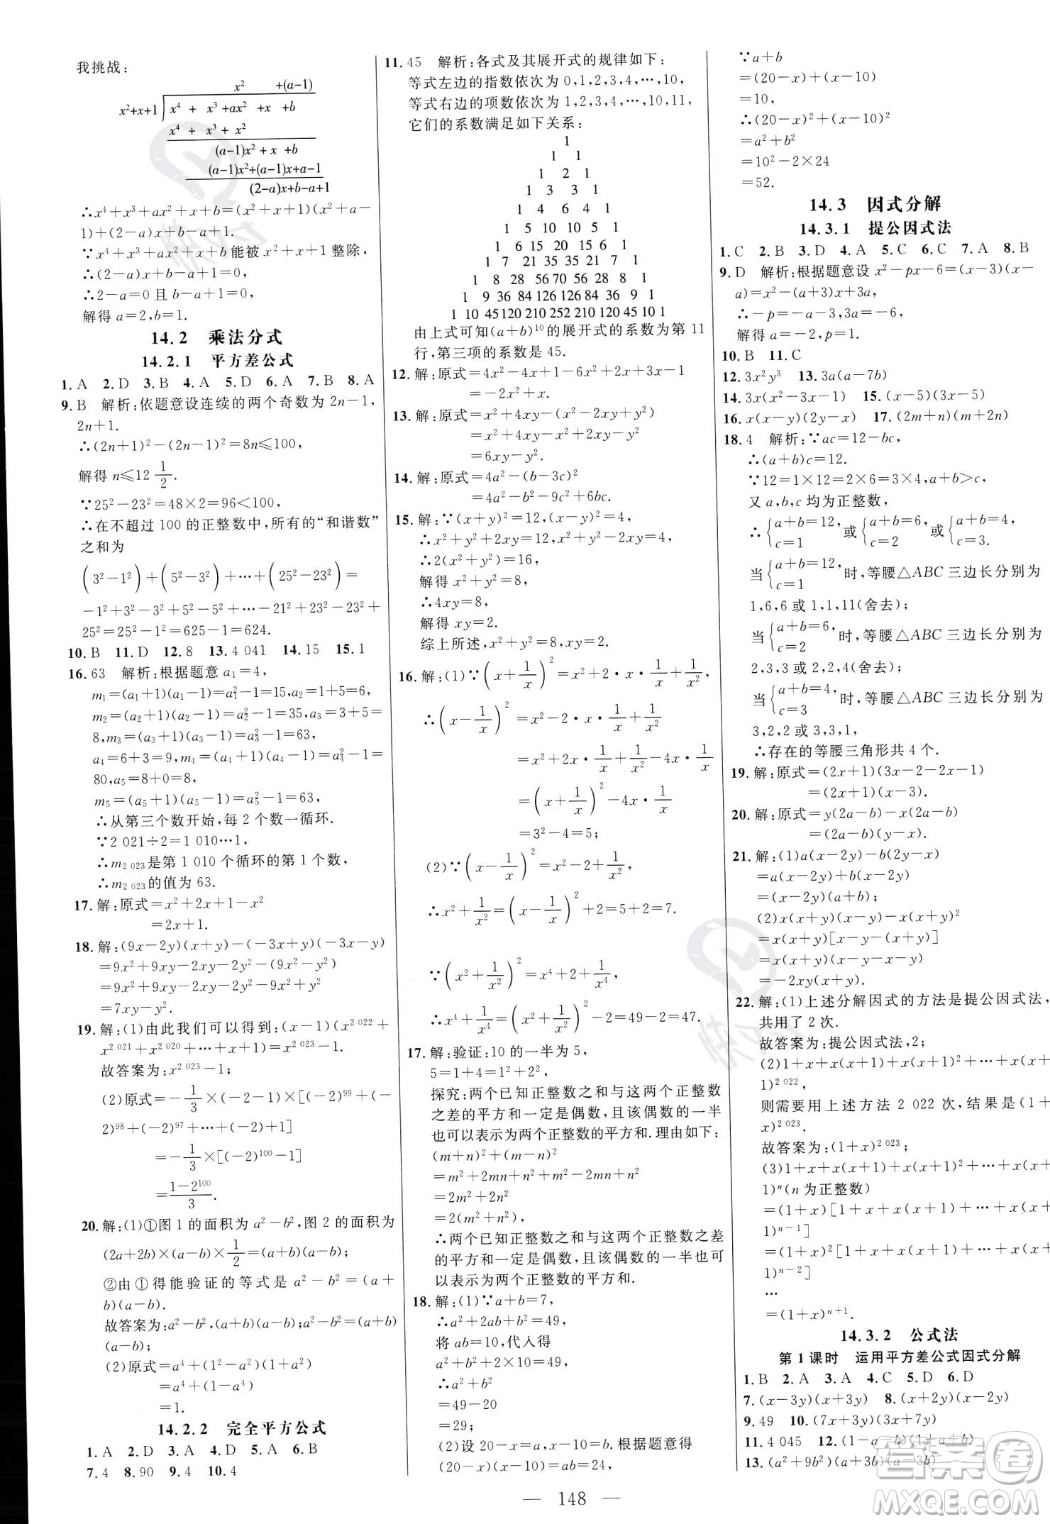 我挑战：
x² +(a-1)
x²+x+1 x⁴ + x³ +ax² +x +b
x⁴ + x³ + x²
(a-1)x² + x +b
(a-1)x²+(a-1)x+a-1
(2-a)x+b-a+1
∴x⁴+x³+ax²+x+b=(x²+x+1)(x²+a-
1)+(2-a)x+b-a+1.
∵x⁴+x³+ax²+x+b能被x²+x+1整除,
∴(2-a)x+b-a+1=0.
∴2-a=0且b-a+1=0.
解得a=2,b=1.
14.2 乘法分式
14.2.1 平方差公式
1. A 2. D 3. B 4. A 5. D 6. B 7. B 8. A
9. B 解析:依题意设连续的两个奇数为2n-1,
2n+1.
∴(2n+1)²-(2n-1)²=8n≤100.
解得n≤12 1/2.
∵25²-23²=48×2=96<100.
∴在不超过100的正整数中,所有的“和谐数”
之和为
(3²-1²)+(5²-3²)+…+(25²-23²)=
-1²+3²-3²+5²-5²+…-21²+23²-23²+
25²=25²-1²=625-1=624.
10. B 11. D 12. 8 13. 4 041 14. 15 15. 1
16. 63 解析:根据题意a₁=4,
m₁=(a₁+1)(a₁-1)=a₁²-1=15,a₂=6.
m₂=(a₂+1)(a₂-1)=a₂²-1=35,a₃=3+5=
8;m₃=(a₃+1)(a₃-1)=a₃²-1=63,
a₄=6+3=9;m₄=(a₄+1)(a₄-1)=a₄²-1=
80,a₅=8,
m₅=(a₅+1)(a₅-1)=a₅²-1=63;
∴从第三个数开始,每2个数一循环.
∵2 021÷2=1 010…1,
∴m₂ ₀₂₃是第1 010个循环的第1个数,
∴m₂ ₀₂₃的值为63.
17. 解:原式=x²+2x+1-x²
=2x+1.
18. 解:(9x-2y)(x+y)-(3x-y)(-3x-y)
=9x²+9xy-2xy-2y²+9x²-y²
=9x²+9xy-2xy-2y²-y²+9x²
=7xy+y².
19. 解:(1)由此我们可以得到:(x-1)(x² ⁰²²+
x² ⁰²¹+x² ⁰²⁰+…+x+1)=x² ⁰²³-1;
故答案为:x² ⁰²³-1;
(2)原式=-1/3×(-2-1)×[(-2)⁹⁹+(-
2)⁹⁸+(-2)⁹⁷+…+(-2)+1]
=-1/3×[(-2)¹⁰⁰-1]
=(1-2¹⁰⁰)/3.
20. 解:(1)①图1的面积为a²-b²,图2的面积为
(2a+2b)×(a-b)×1/2=(a+b)(a-b).
②由①得能验证的等式是a²-b²=(a+
b)(a-b).
故答案为:a²-b²,(a+b)(a-b),a²-b²=
(2)原式=a⁴-(a²-1)(a²+1)
=a⁴-a⁴+1
=1.
14.2.2 完全平方公式
1. A 2. D 3. D 4. D 5. A 6. B
7. 4 8. 90 9. 4 10. 4
11. 45 解析:各式及其展开式的规律如下:
等式左边的指数依次为0,1,2,3,4,…,10;
等式右边的项数依次为1,2,3,4,5,…,11,
它们的系数满足如下关系:
1
1 1
1 2 1
1 3 3 1
1 4 6 4 1
1 5 10 10 5 1
1 6 15 20 15 6 1
1 7 21 35 35 21 7 1
1 8 28 56 70 56 28 8 1
1 9 36 84 126 126 84 36 9 1
1 10 45 120 210 252 210 120 45 10 1
由上式可知(a+b)¹⁰的展开式的系数为第11
行,第三项的系数是45.
12. 解:原式=4x²-4x+1-6x²+4x-1
=-2x²+x.
13. 解:原式=x²+4xy-(x²-2xy+y²)+y²
=x²+4xy-x²+2xy-y²+y²
=6xy.
14. 解:原式=4a²-(b-3c)²
=4a²-b²-9c²+6bc.
15. 解:∵(x+y)²=12,(x-y)²=4,
∴x²+y²+2xy=12,x²+y²-2xy=4,
∴2(x²+y²)=16,
解得x²+y²=8,
∴4xy=8,
解得xy=2.
综上所述,x²+y²=8,xy=2.
16. 解:(1)∵(x+1/x)²=x²+2·x·1/x+1/x²,
∴(x-1/x)²=x²-2·x·1/x+1/x²
=x²+1/x²
=(x+1/x)²-4x·1/x
=3²-4=5;
(2)∵(x-1/x)²=x²-2+1/x²,
∴x²+1/x²=(x-1/x)²+2=5+2=7.
∵(x²+1/x²)²=x⁴+2+1/x⁴,
∴x⁴+1/x⁴=(x²+1/x²)²-2=49-2=47.
17. 解:验证:10的一半为5,
5=1+4=1²+2²,
探究:两个已知正整数之和与这两个正整数
之差的平方和一定是偶数,且该偶数的一半
也可以表示为两个正整数的平方和.理由如下:
(m+n)²+(m-n)²
=m²+2mn+n²+m²-2mn+n²
=2m²+2n²
=2(m²+n²).
∴两个已知正整数之和与这两个正整数之差
的平方和一定是偶数,且该偶数的一半也可
以表示为两个正整数的平方和.
18. 解:(1)∵a+b=7,
∴a²+2ab+b²=49,
将ab=10,代入得
∴a²+b²
=49-20
=29;
(2)设20-x=a,x-10=b.根据题意得
(20-x)(x-10)=ab=24,
∵a+b
=(20-x)+(x-10)
=10,
∴(20-x)²+(x-10)²
=a²+b²
=10²-2×24
=52.
14.3 因式分解
14.3.1 提公因式法
1. C 2. B 3. D 4. A 5. C 6. C 7. A 8. B
9. D 解析:根据题意设x²-px-6=(x-3)(x-
a)=x²-(a+3)x+3a,
∴-p=-(a+3),3a=-6,
解得a=-2,p=1.
10. B 11. C
12. 3x²y³ 13. 3a(a-7b)
14. 3x(x²-3x-1) 15. (x-5)(3x-5)
16. x(x-y)(2y-x) 17. (2m+n)(m+2n)
18. 4 解析:∵ac=12-bc,
∴(a+b)c=12.
∵12=1×12=2×6=3×4,
又a,b,c均为正整数,
∴{a+b=12, c=1 或{a+b=6, c=2 或{a+b=4, c=3
当{a+b=12, c=1 时,等腰△ABC三边长分别为
1,6,6或1,1,11(舍去);
当{a+b=6, c=2 时,等腰△ABC三边长分别为
2,3,3或2,2,4(舍去);
当{a+b=4, c=3 时,等腰△ABC三边长分别为
3,2,2或3,3,1.
∴存在的等腰三角形共4个.
19. 解:原式=(2x+1)(3x-2-2x-1)
=(2x+1)(x-3).
20. 解:原式=y(2a-b)+x(2a-b)
=(2a-b)(y+x).
21. 解:(1)a(x-2y)-b(2y-x)
=a(x-2y)+b(x-2y)
=(x-2y)(a+b);
(2)x(x+y)(x-y)-x(x+y)²
=x(x+y)[x-y-(x+y)]
=x(x+y)(-2y)
=-2xy(x+y).
22. 解:(1)上述分解因式的方法是提公因式法,
共用了2次.
故答案为:提公因式法,2;
(2)1+x+x(x+1)+x(x+1)²+…+x(x+
1)² ⁰²²,
则需要用上述方法2 022次,结果是(1+
x)² ⁰²³.
故答案为:(1+x)² ⁰²³;
(3)1+x+x(x+1)+x(x+1)²+…+x(x+
1)ⁿ(n为正整数)
=(1+x)[1+x+x(x+1)+…+x(x+
1)ⁿ⁻¹]
=(1+x)²[1+x+x(x+1)+…+x(x+
1)ⁿ⁻²]
…
=(1+x)ⁿ⁺¹.
14.3.2 公式法
第1课时 运用平方差公式因式分解
1. B 2. A 3. A 4. C 5. D 6. D
7. (x-3y)(x+3y) 8. (x+2y)(x-2y)
9. 49 10. (7x+3y)(3x+7y)
11. 4 045 12. (1-a-b)(1+a-b)
13. (a²+9b²)(a+3b)(a-3b)
— 148 —
答案圈